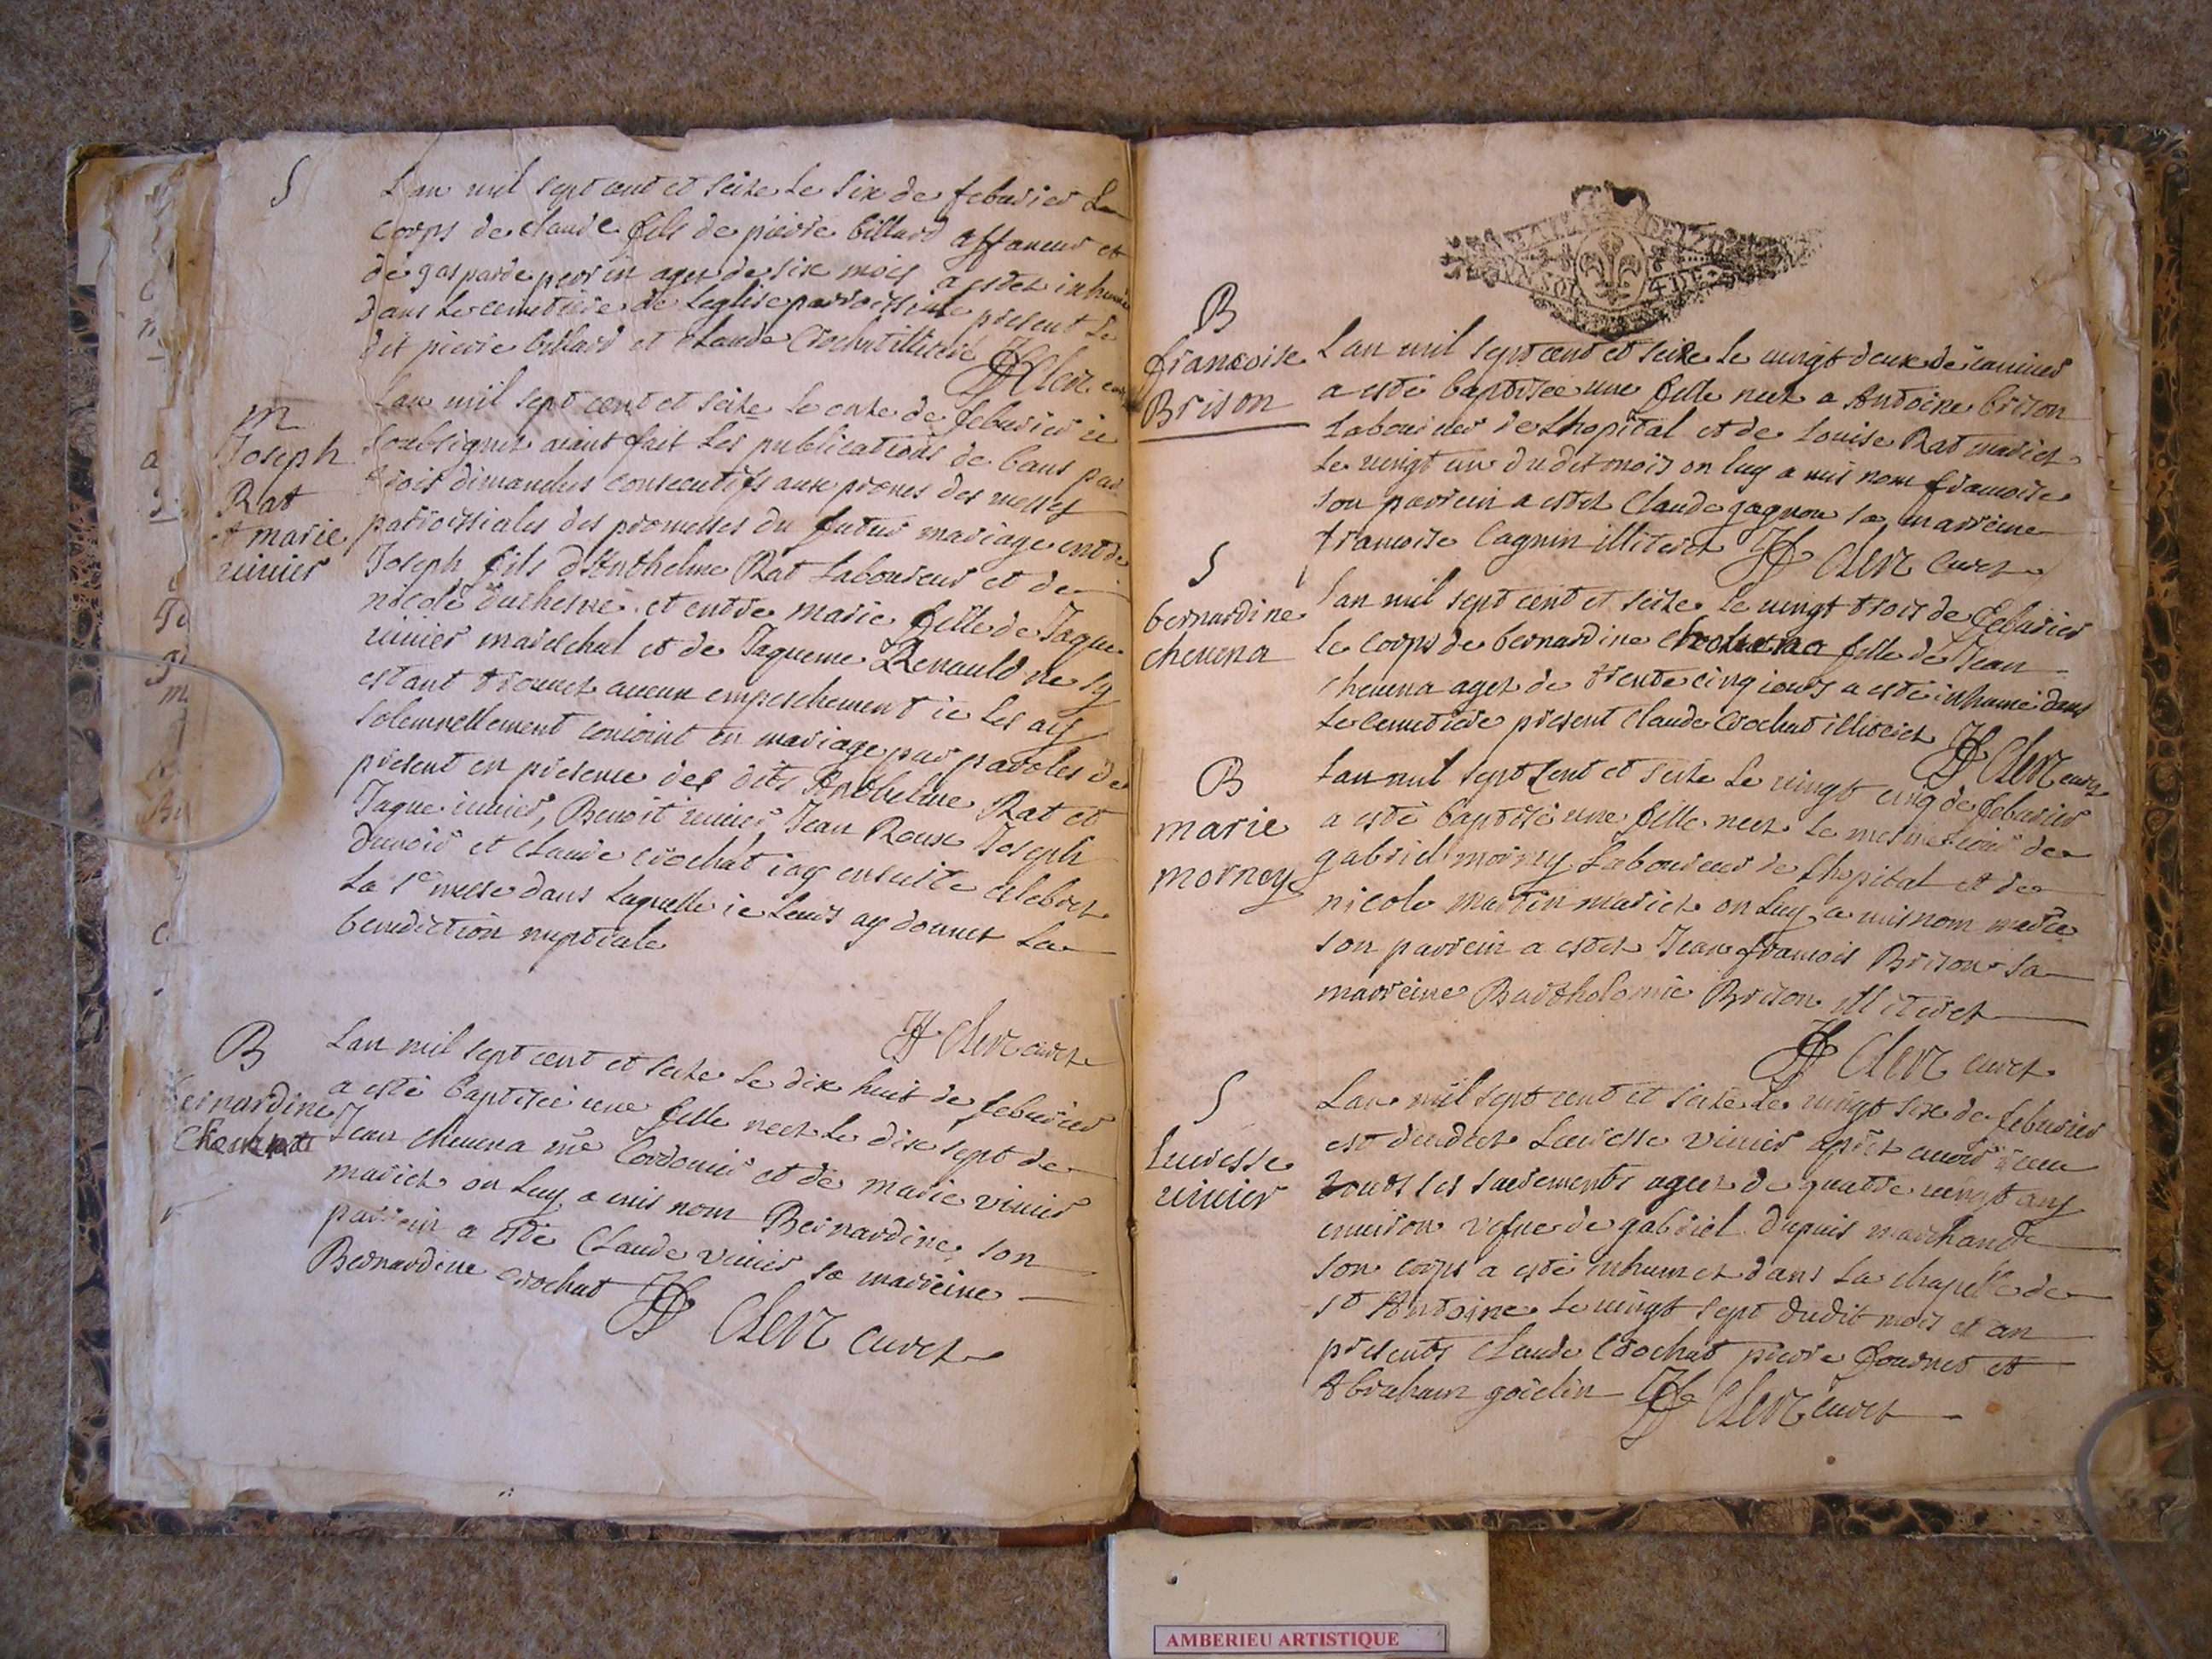 S
Lan mil sept cent et seize le six de febvrier Le
corps de claude fils de pierre billard affaneur et
de gasparde perrin agez de six mois a estez inhumé
dans le cemetiere de leglise parroissiale present le
dit pierre billard et Claude Crochat illiteré
JF Clerc curé
M
Joseph
Rat
et marie
vivier
Lan mil sept cent et seize le onze de febvrier ie
soubsignez aiant fait les publications de bans par
trois dimanches consecutifs aux prones des messes
parroissiales des promesses du futur mariage entre
Joseph fils d'Anthelme Rat Laboureur et de
nicole duchesne et entre marie fille de Jaque
vivier mareschal et de Jaqueme Renauld ne sy
estant trouvez aucun empeschement ie les ay
solemnellement conioint en mariage par paroles de
present en presence des dits Anthelme Rat et
Jaque vivier, Benoit vivier, Jean Roux Joseph
et Claude Crochat iay ensuite celebrez
la Ste messe dans laquelle ie leurs ay donnez la
benediction nuptiale
JF Clerc curez
B
bernardine
Lan mil sept cent et seize le dix huit de febvrier
a esté baptisée une fille neez le dix sept de
Jean chevena me Cordonier et de marie vivier
mariez on luy a mis nom Bernardine, son
parrein a esté Claude vivier sa marreine
Bernardine Crochat JF Clerc curez
B
francoise
Brison
Lan mil sept cent et seize le vingt deux de ianvier
a esté baptisée une fille neez a Antoine brison
Laboureur de Lhopital et de Louise Rat mariez
le vingt un du dit mois on luy a mis nom francoise
son parrein a estez Claude gagnon sa marreine
francoise Cagnin illiterez JF Clerc curez
S
bernardine
chevena
Lan mil sept cent et seize le vingt trois de febvrier
le corps de bernardine fille de Jean
chevena agez de trente cinq iours a esté inhumé dans
le cemetiere present Claude Crochat illiterez JF Clerc curez
B
marie
morney
Lan mil sept Cent et seize le vingt cinq de febvrier
a esté baptisé une fille neez le mesme iour de
gabriel morney Laboureur de Lhopital et de
nicole martin mariez on luy a mis nom marie
son parrein a estez Jean francois Brison sa
marreine Bartholomie Brison illiterez
JF Clerc curez
S
Lucresse
vivier
Lan mil sept cent et seize le vingt six de febvrier
est decedez Lucresse vivier aprez avoir receu
touts ses sacrements agez de quatre vingt ans
environ vefve de gabriel dupuis marchand
son corps a esté inhumez dans la chapelle de
St Antoine le vingt sept dudit mois et an
presents Claude Crochat pierre fournet et
Abraham goiclin JF Clerc curez
AMBERIEU ARTISTIQUE